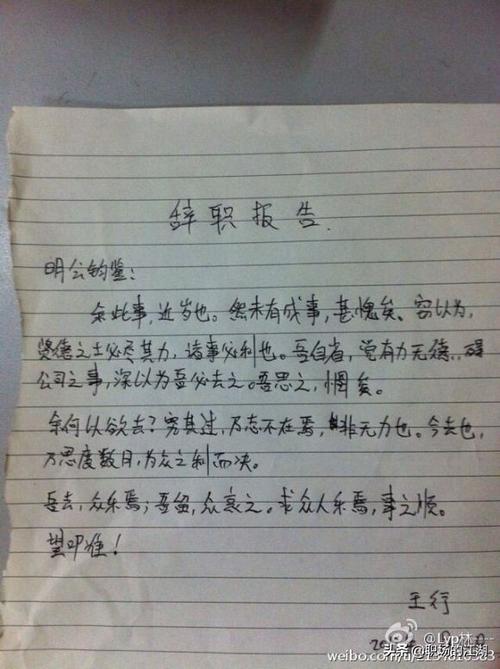 辞职报告.
明公钧鉴:
余此事,近岁也。然未有成事,甚愧矣。窃以为,
贤德之士必尽其力,诸事必利也。吾自省,觉有力无德,碍
公司之事,深以为吾必去之。吾思之,惘矣。
余何以欲去?究其过,乃志不在焉,非无力也。今去也,
乃思度数月,为众之利而决。
吾去,众乐焉;吾留,众哀之。求众人乐焉,事之顺。
望叩准!
王行
@Lyp林
头条 @职场的江湖
weibo.com/u/